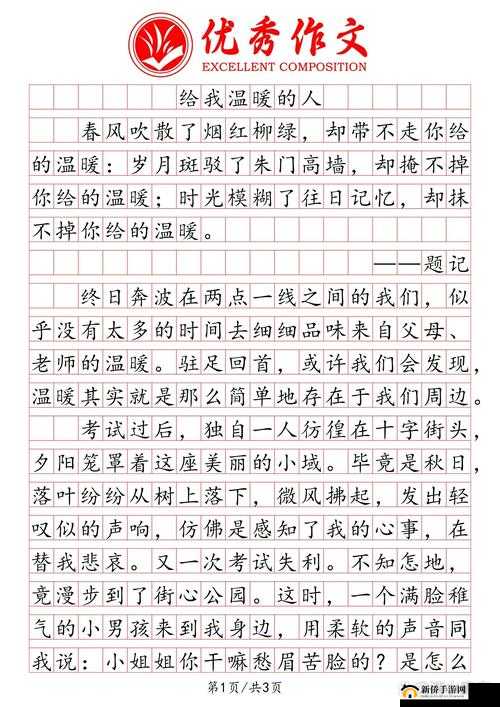 优秀作文
EXCELLENT COMPOSITION
给我温暖的人
春风吹散了烟红柳绿，却带不走你给
的温暖：岁月斑驳了朱门高墙，却掩不掉
你给的温暖；时光模糊了往日记忆，却抹
不掉你给的温暖。
——题记
终日奔波在两点一线之间的我们，似
乎没有太多的时间去细细品味来自父母、
老师的温暖。驻足回首，或许我们会发现，
温暖其实就是那么简单地存在于我们周边。
考试过后，独自一人彷徨在十字街头，
夕阳笼罩着这座美丽的小域。毕竟是秋日，
落叶纷纷从树上落下，微风拂起，发出轻
叹似的声响，仿佛是感知了我的心事，在
替我悲哀。又一次考试失利。不知怎地，
竟漫步到了街心公园。这时，一个满脸稚
气的小男孩来到我身边，用柔软的声音同
我说：小姐姐你干嘛愁眉苦脸的？是怎么
第1页/共3页
新侨手游网